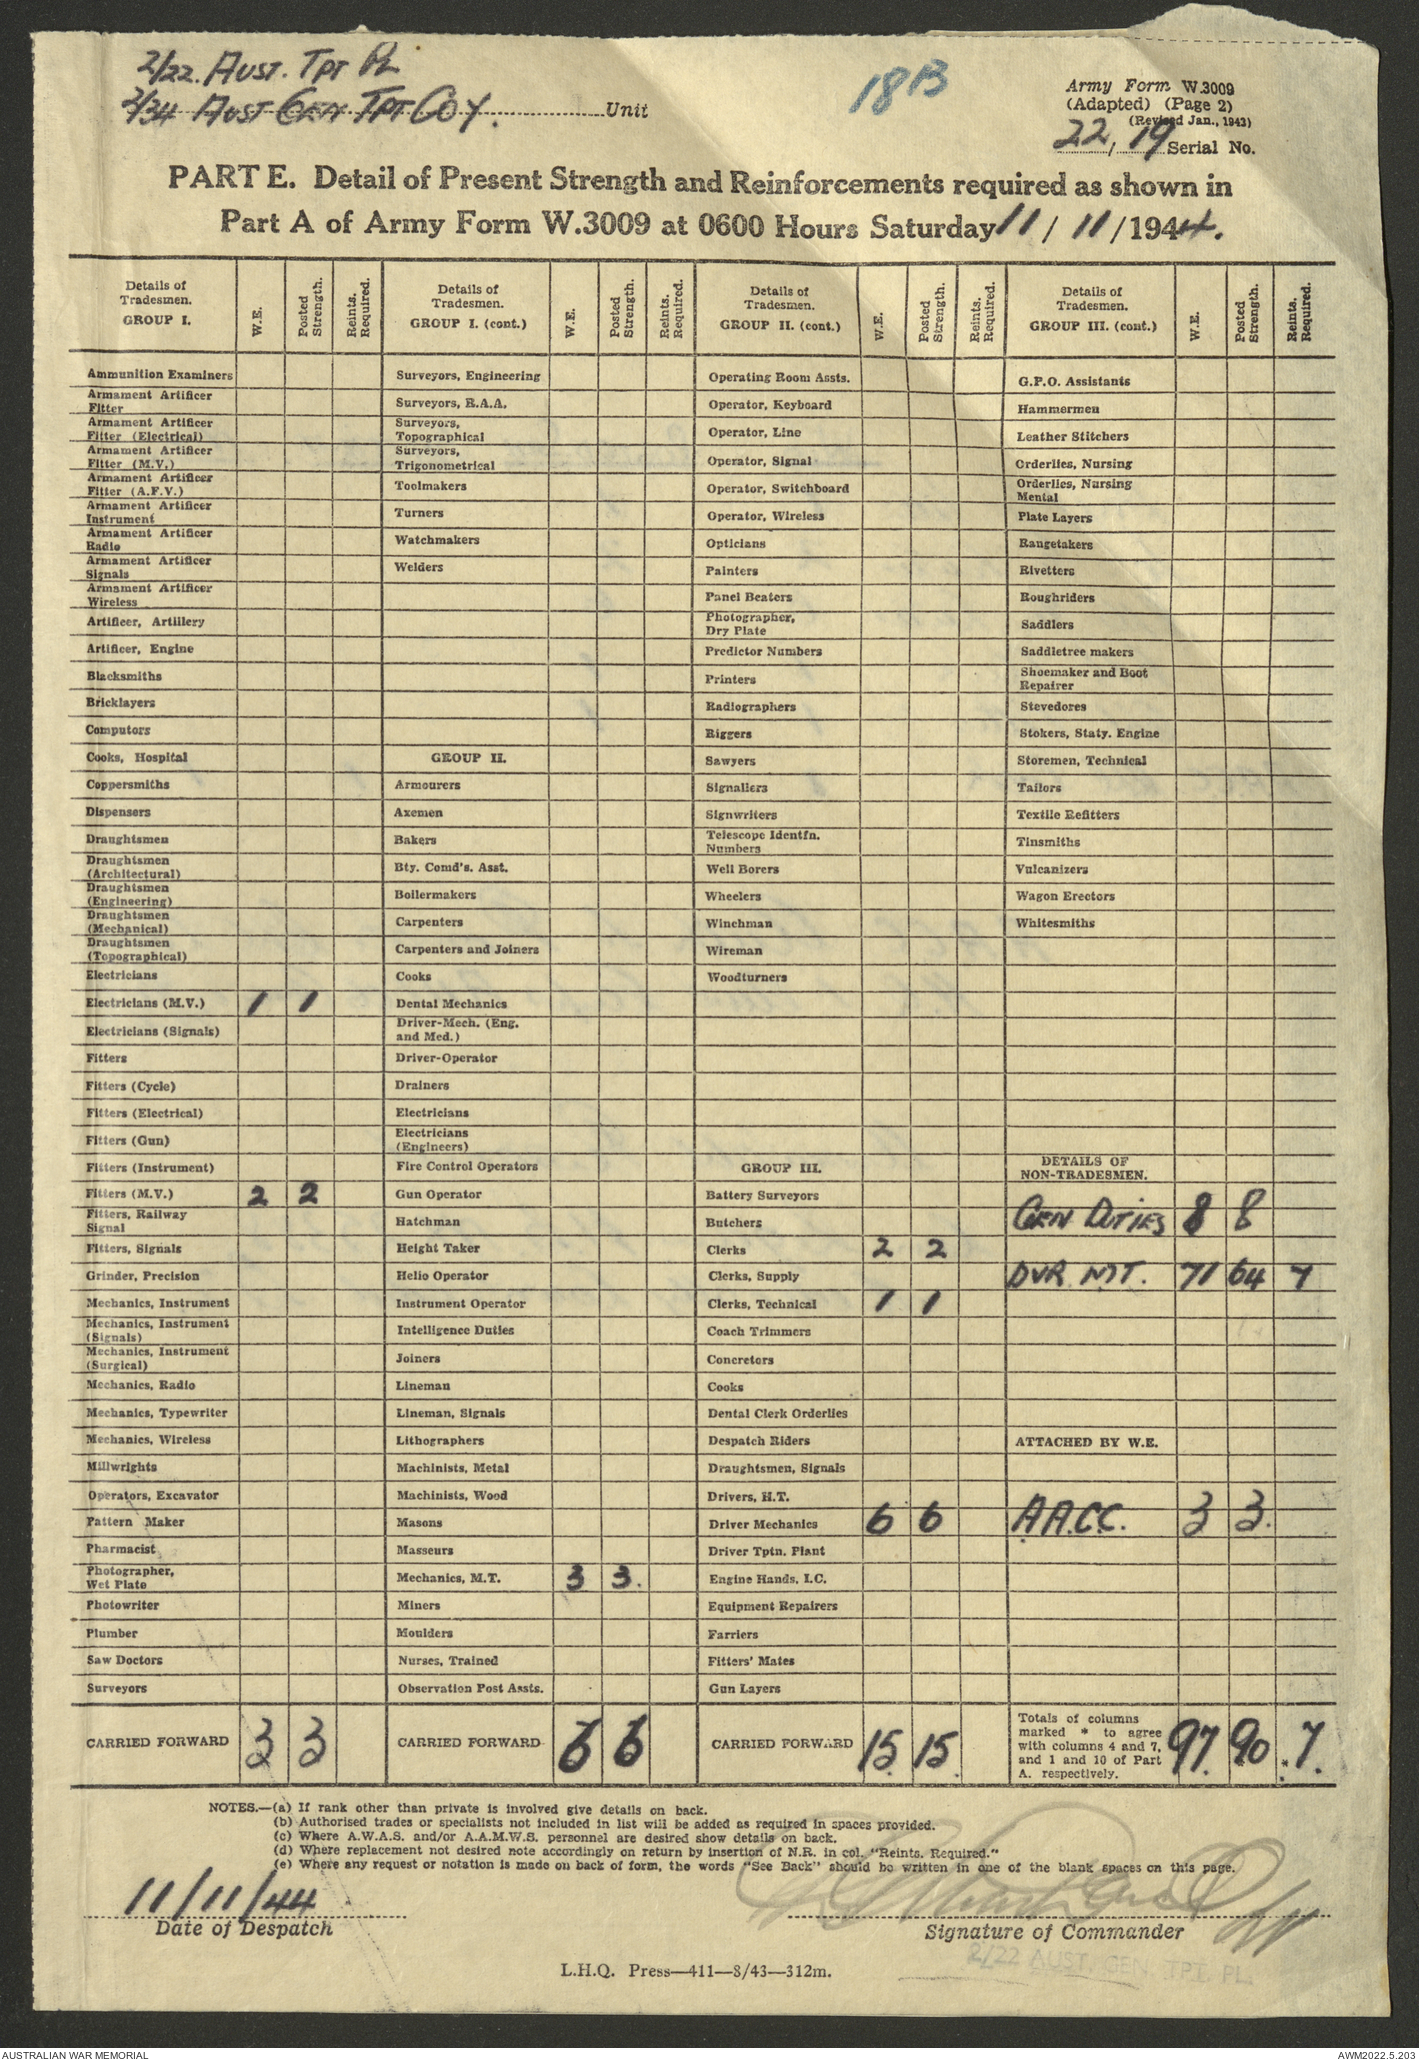 2/22. AUST. TPT PL
2/34 AUST GEN TPT COY. Unit
18B
Army Form W.3009
(Adapted) (Page 2)
(Revised Jan., 1943)
22/19 Serial No.
PART E. Detail of Present Strength and Reinforcements required as shown in
Part A of Army Form W.3009 at 0600 Hours Saturday 11/11/1944.
Details of Tradesmen. GROUP I. W.E. Posted Strength. Reints. Required.
Ammunition Examiners
Armament Artificer Fitter
Armament Artificer Fitter (Electrical)
Armament Artificer Fitter (M.V.)
Armament Artificer Fitter (A.F.V.)
Armament Artificer Instrument
Armament Artificer Radio
Armament Artificer Signals
Armament Artificer Wireless
Artificer, Artillery
Artificer, Engine
Blacksmiths
Bricklayers
Computors
Cooks, Hospital
Coppersmiths
Dispensers
Draughtsmen
Draughtsmen (Architectural)
Draughtsmen (Engineering)
Draughtsmen (Mechanical)
Draughtsmen (Topographical)
Electricians
Electricians (M.V.) 1 1
Electricians (Signals)
Fitters
Fitters (Cycle)
Fitters (Electrical)
Fitters (Gun)
Fitters (Instrument)
Fitters (M.V.) 2 2
Fitters, Railway Signal
Fitters, Signals
Grinder, Precision
Mechanics, Instrument
Mechanics, Instrument (Signals)
Mechanics, Instrument (Surgical)
Mechanics, Radio
Mechanics, Typewriter
Mechanics, Wireless
Millwrights
Operators, Excavator
Pattern Maker
Pharmacist
Photographer, Wet Plate
Photowriter
Plumber
Saw Doctors
Surveyors
CARRIED FORWARD 3 3
Details of Tradesmen. GROUP I. (cont.) W.E. Posted Strength. Reints. Required.
Surveyors, Engineering
Surveyors, R.A.A.
Surveyors, Topographical
Surveyors, Trigonometrical
Toolmakers
Turners
Watchmakers
Welders
GROUP II.
Armourers
Axemen
Bakers
Bty. Comd's. Asst.
Boilermakers
Carpenters
Carpenters and Joiners
Cooks
Dental Mechanics
Driver-Mech. (Eng. and Med.)
Driver-Operator
Drainers
Electricians
Electricians (Engineers)
Fire Control Operators
Gun Operator
Hatchman
Height Taker
Helio Operator
Instrument Operator
Intelligence Duties
Joiners
Lineman
Lineman, Signals
Lithographers
Machinists, Metal
Machinists, Wood
Masons
Masseurs
Mechanics, M.T. 3 3.
Miners
Moulders
Nurses, Trained
Observation Post Assts.
CARRIED FORWARD 6 6
Details of Tradesmen. GROUP II. (cont.) W.E. Posted Strength. Reints. Required.
Operating Room Assts.
Operator, Keyboard
Operator, Line
Operator, Signal
Operator, Switchboard
Operator, Wireless
Opticians
Painters
Panel Beaters
Photographer, Dry Plate
Predictor Numbers
Printers
Radiographers
Riggers
Sawyers
Signallers
Signwriters
Telescope Identfn. Numbers
Well Borers
Wheelers
Winchman
Wireman
Woodturners
GROUP III.
Battery Surveyors
Butchers
Clerks 2 2
Clerks, Supply
Clerks, Technical 1 1
Coach Trimmers
Concreters
Cooks
Dental Clerk Orderlies
Despatch Riders
Draughtsmen, Signals
Drivers, H.T.
Driver Mechanics 6 6
Driver Tptn. Plant
Engine Hands, I.C.
Equipment Repairers
Farriers
Fitters' Mates
Gun Layers
CARRIED FORWARD 15 15
Details of Tradesmen. GROUP III. (cont.) W.E. Posted Strength. Reints. Required.
G.P.O. Assistants
Hammermen
Leather Stitchers
Orderlies, Nursing
Orderlies, Nursing Mental
Plate Layers
Rangetakers
Rivetters
Roughriders
Saddlers
Saddletree makers
Shoemaker and Boot Repairer
Stevedores
Stokers, Staty. Engine
Storemen, Technical
Tailors
Textile Refitters
Tinsmiths
Vulcanizers
Wagon Erectors
Whitesmiths
DETAILS OF NON-TRADESMEN.
GEN DUTIES 8 8
DVR MT. 71 64 7
ATTACHED BY W.E.
A.A.C.C. 3 3.
Totals of columns marked * to agree with columns 4 and 7, and 1 and 10 of Part A. respectively. 97 90 7.
NOTES.—(a) If rank other than private is involved give details on back.
(b) Authorised trades or specialists not included in list will be added as required in spaces provided.
(c) Where A.W.A.S. and/or A.A.M.W.S. personnel are desired show details on back.
(d) Where replacement not desired note accordingly on return by insertion of N.R. in col. "Reints. Required."
(e) Where any request or notation is made on back of form, the words "See Back" should be written in one of the blank spaces on this page.
11/11/44
Date of Despatch
Signature of Commander
2/22 AUST. GEN. TPT. PL.
L.H.Q. Press—411—8/43—312m.
AUSTRALIAN WAR MEMORIAL
AWM2022.5.203